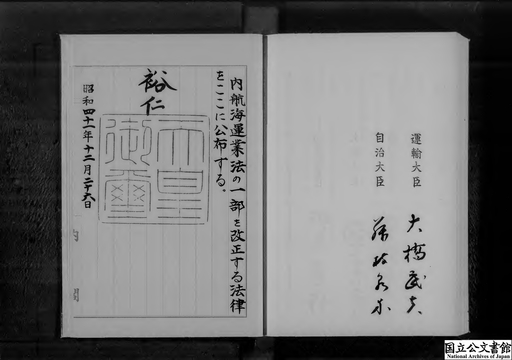 運輸大臣 大橋武夫
自治大臣 藤枝泉介
内航海運業法の一部を改正する法律
をここに公布する。
裕仁
天皇
御璽
昭和四十一年十二月二十六日
国立公文書館
National Archives of Japan